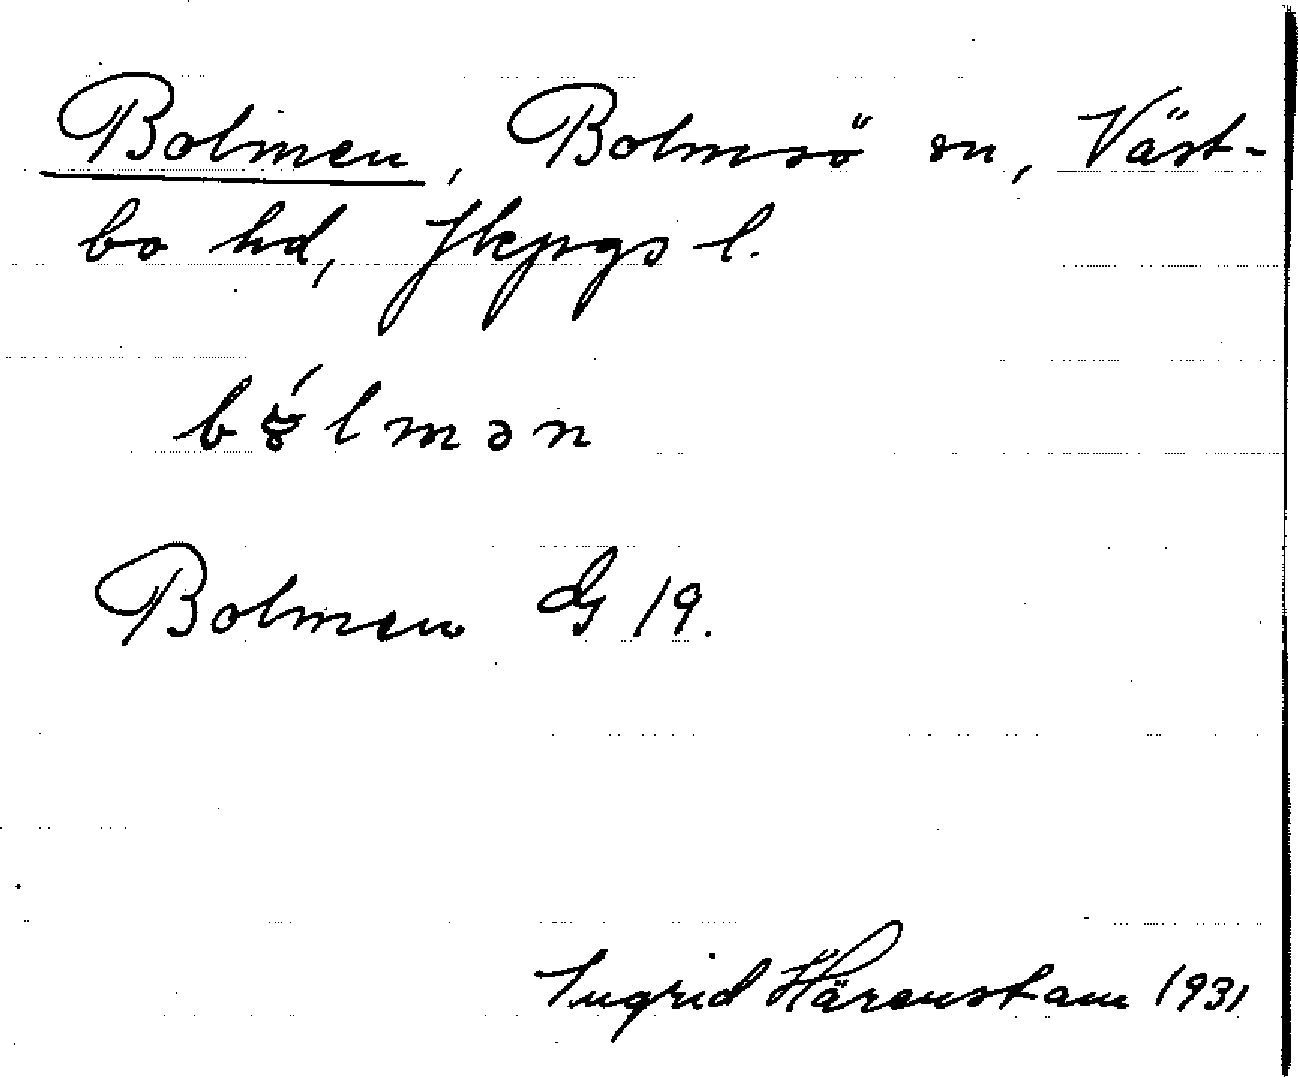 Bolmen, Bolmsö sn, Väst-
bo hd, Jkpgs l.
Bolmen G 19.
Ingrid Härenstam 1931